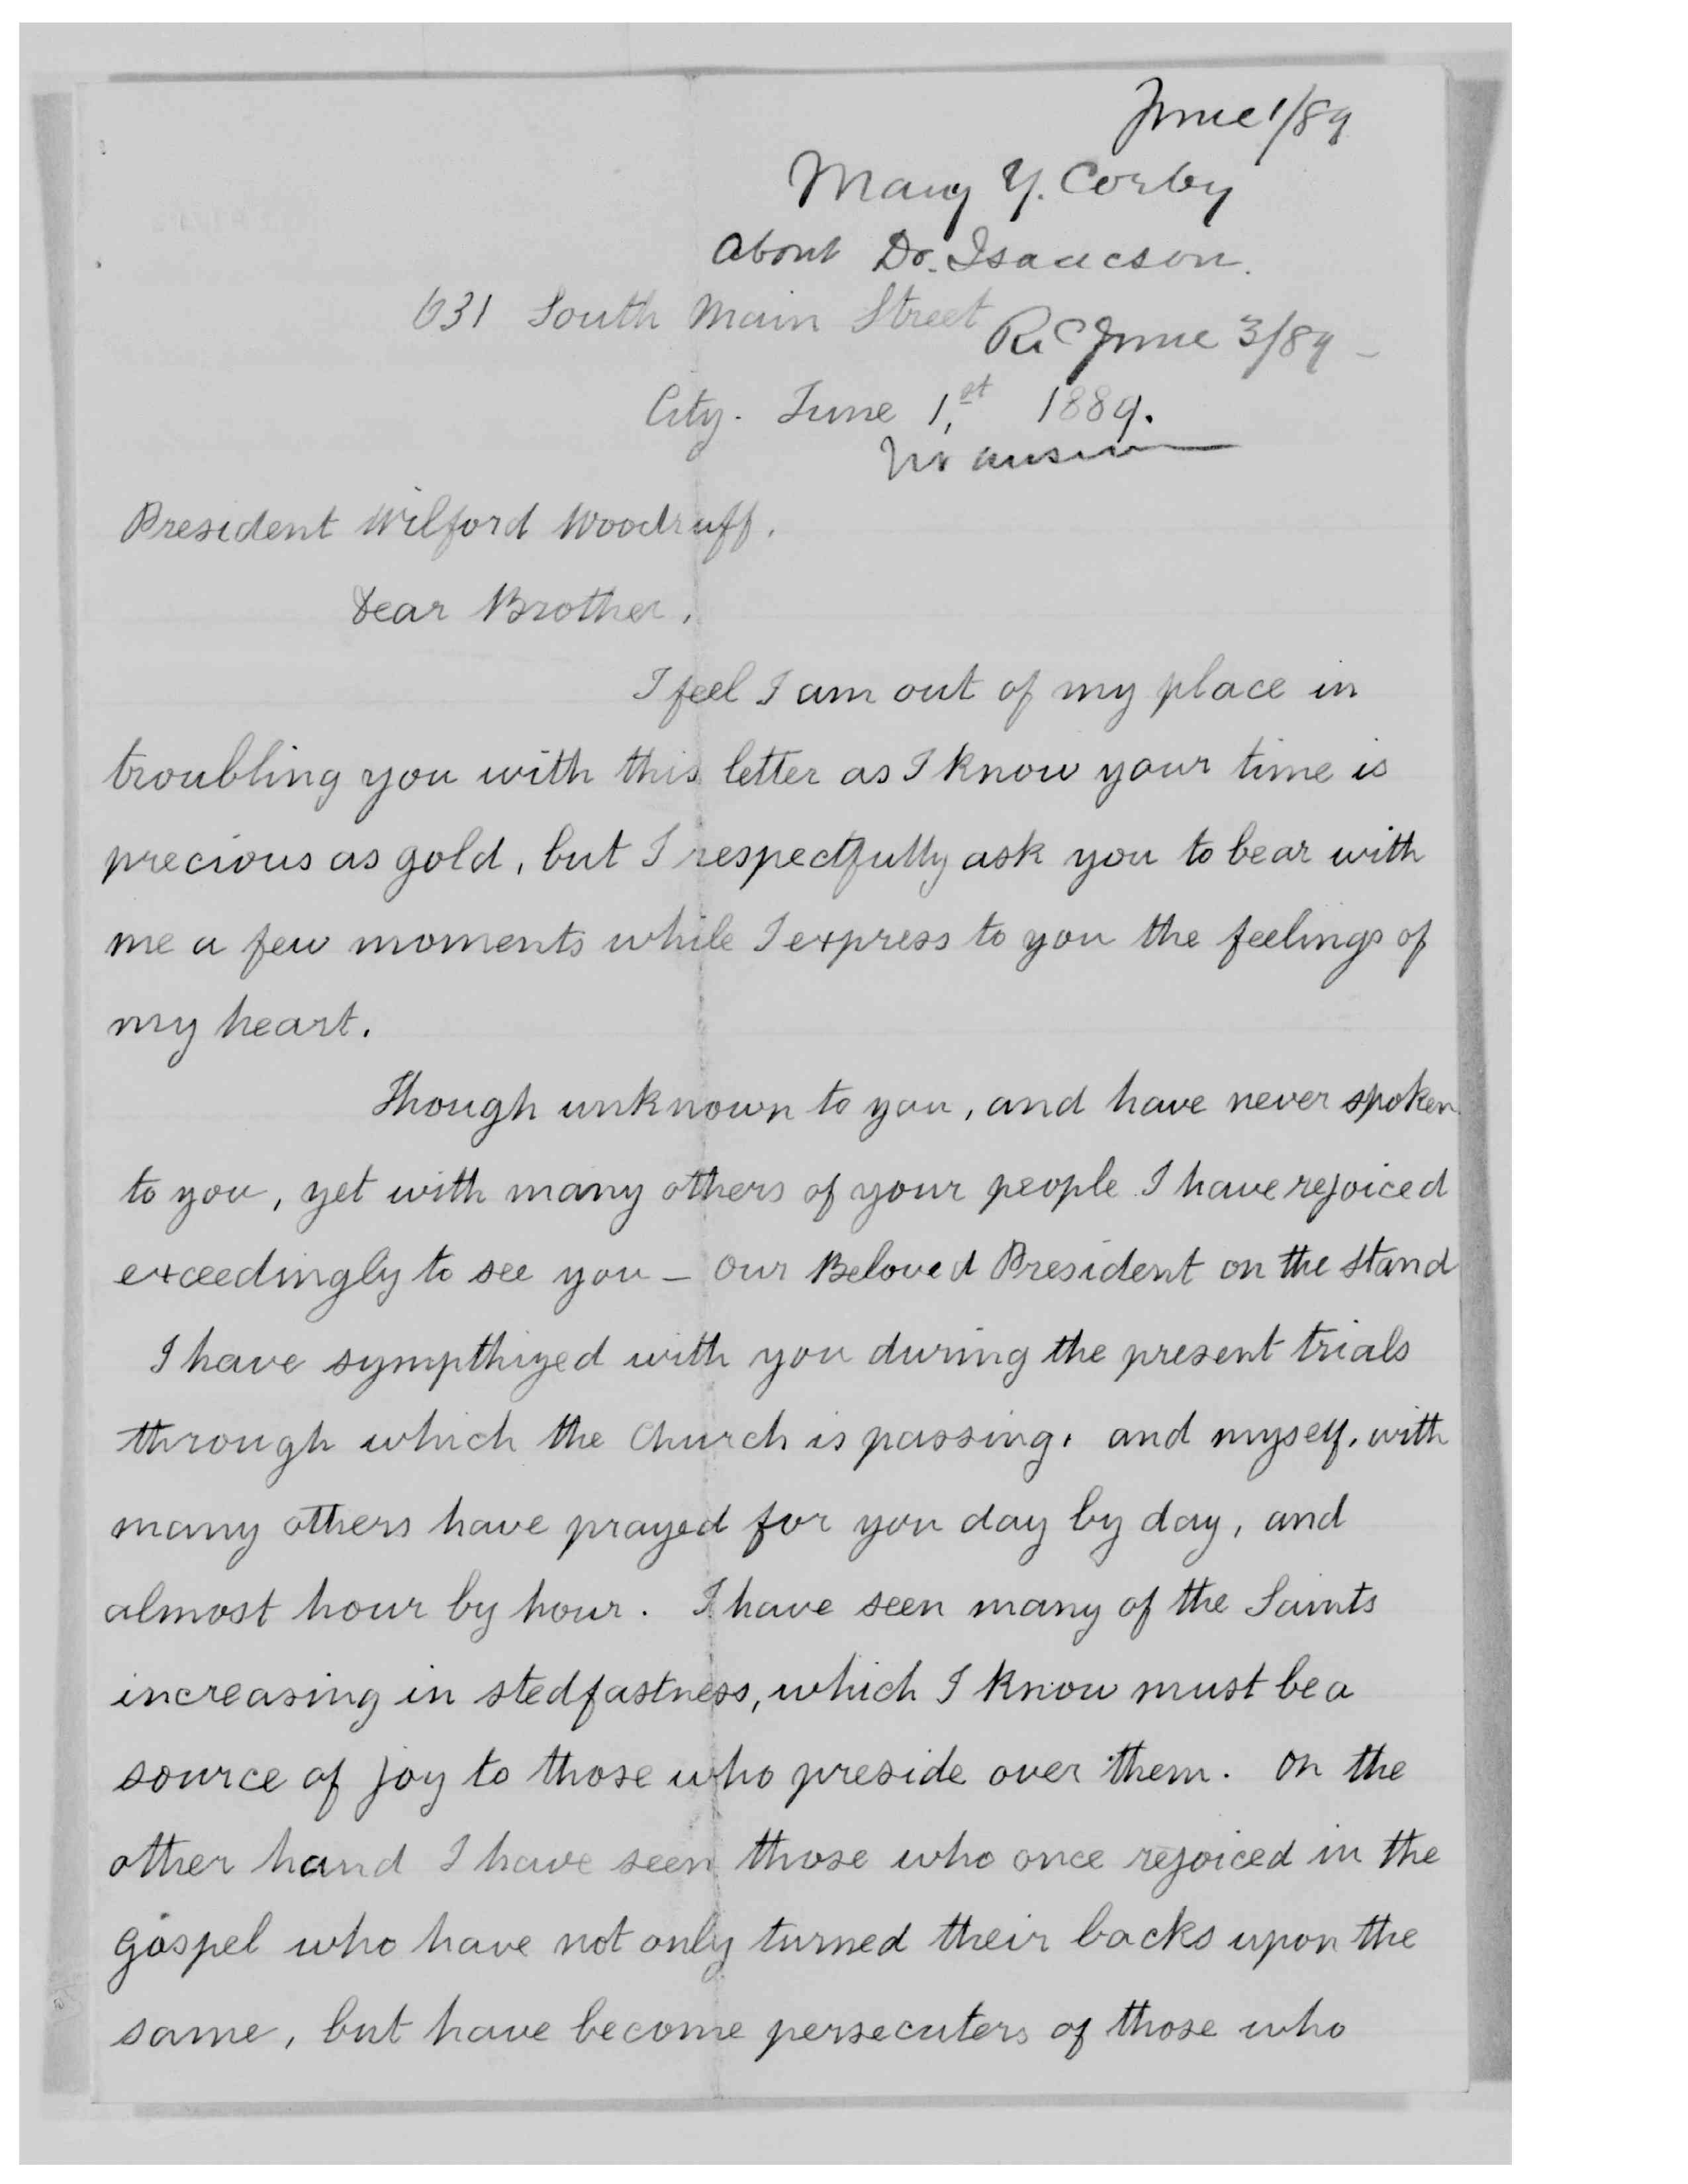 June 1/89
Mary Y. Corby
about Dr. Isaacson.
631 South Main Street
Rec June 3/89 -
City. June 1,st 1889.
No answer
President Wilford Woodruff.
Dear Brother,
I feel I am out of my place in
troubling you with this letter as I know your time is
precious as gold, but I respectfully ask you to bear with
me a few moments while I express to you the feelings of
my heart.
Though unknown to you, and have never spoken
to you, yet with many others of your people I have rejoiced
exceedingly to see you - our Beloved President on the stand
I have sympthized with you during the present trials
through which the Church is passing, and myself, with
many others have prayed for you day by day, and
almost hour by hour. I have seen many of the Saints
increasing in stedfastness, which I know must be a
source of joy to those who preside over them. On the
other hand I have seen those who once rejoiced in the
gospel who have not only turned their backs upon the
same, but have become persecuters of those who